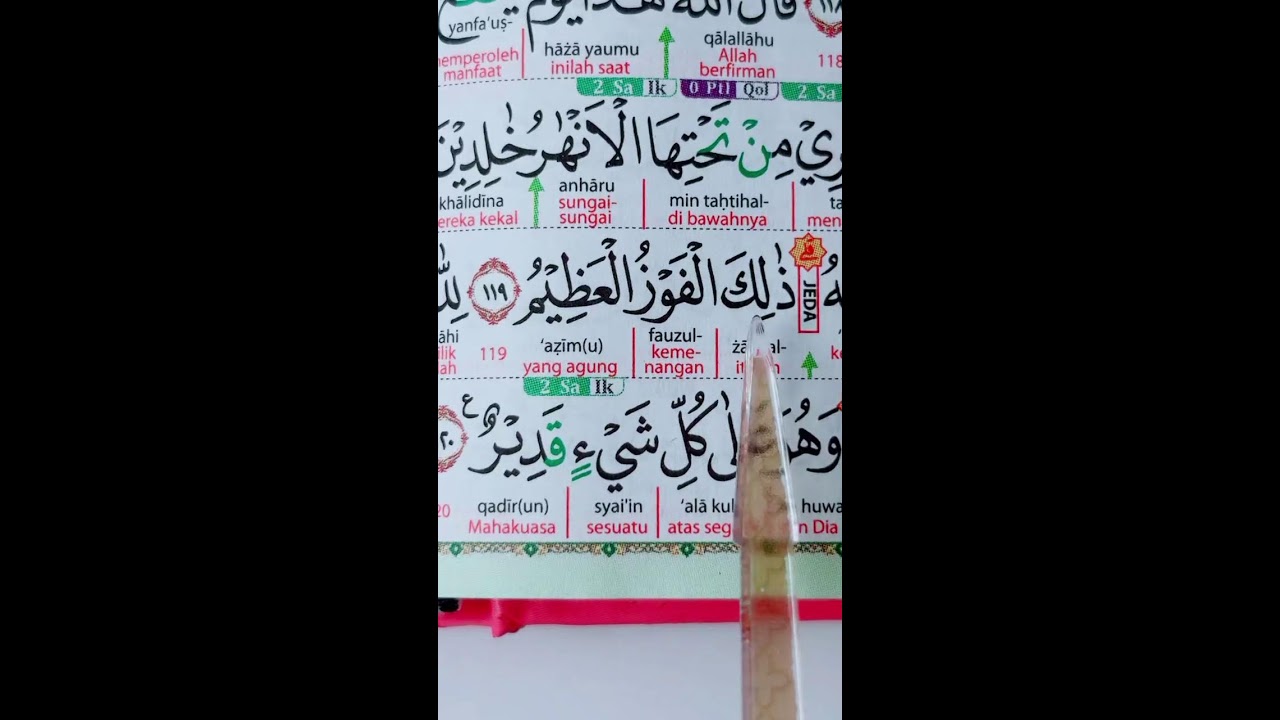 ١١٨ قَالَ اللّٰهُ هٰذَا يَوْمُ
yanfa‘uṣ- hāżā yaumu qālallāhu
manfaat inilah saat Allah berfirman 118
2 Sa Ik 0 Ptl Qol 2 Sa
مِنْ تَحْتِهَا الْاَنْهٰرُ خٰلِدِيْنَ
khālidīna anhāru min taḥtihal-
kekal sungai-sungai di bawahnya
ذٰلِكَ الْفَوْزُ الْعَظِيْمُ ١١٩
JEDA
‘aẓīm(u) fauzul-
119 yang agung keme-nangan
2 Sa Ik
وَهُوَ كُلِّ شَيْءٍ قَدِيْرٌ ع
qadīr(un) syai'in ‘alā huwa
Mahakuasa sesuatu atas Dia